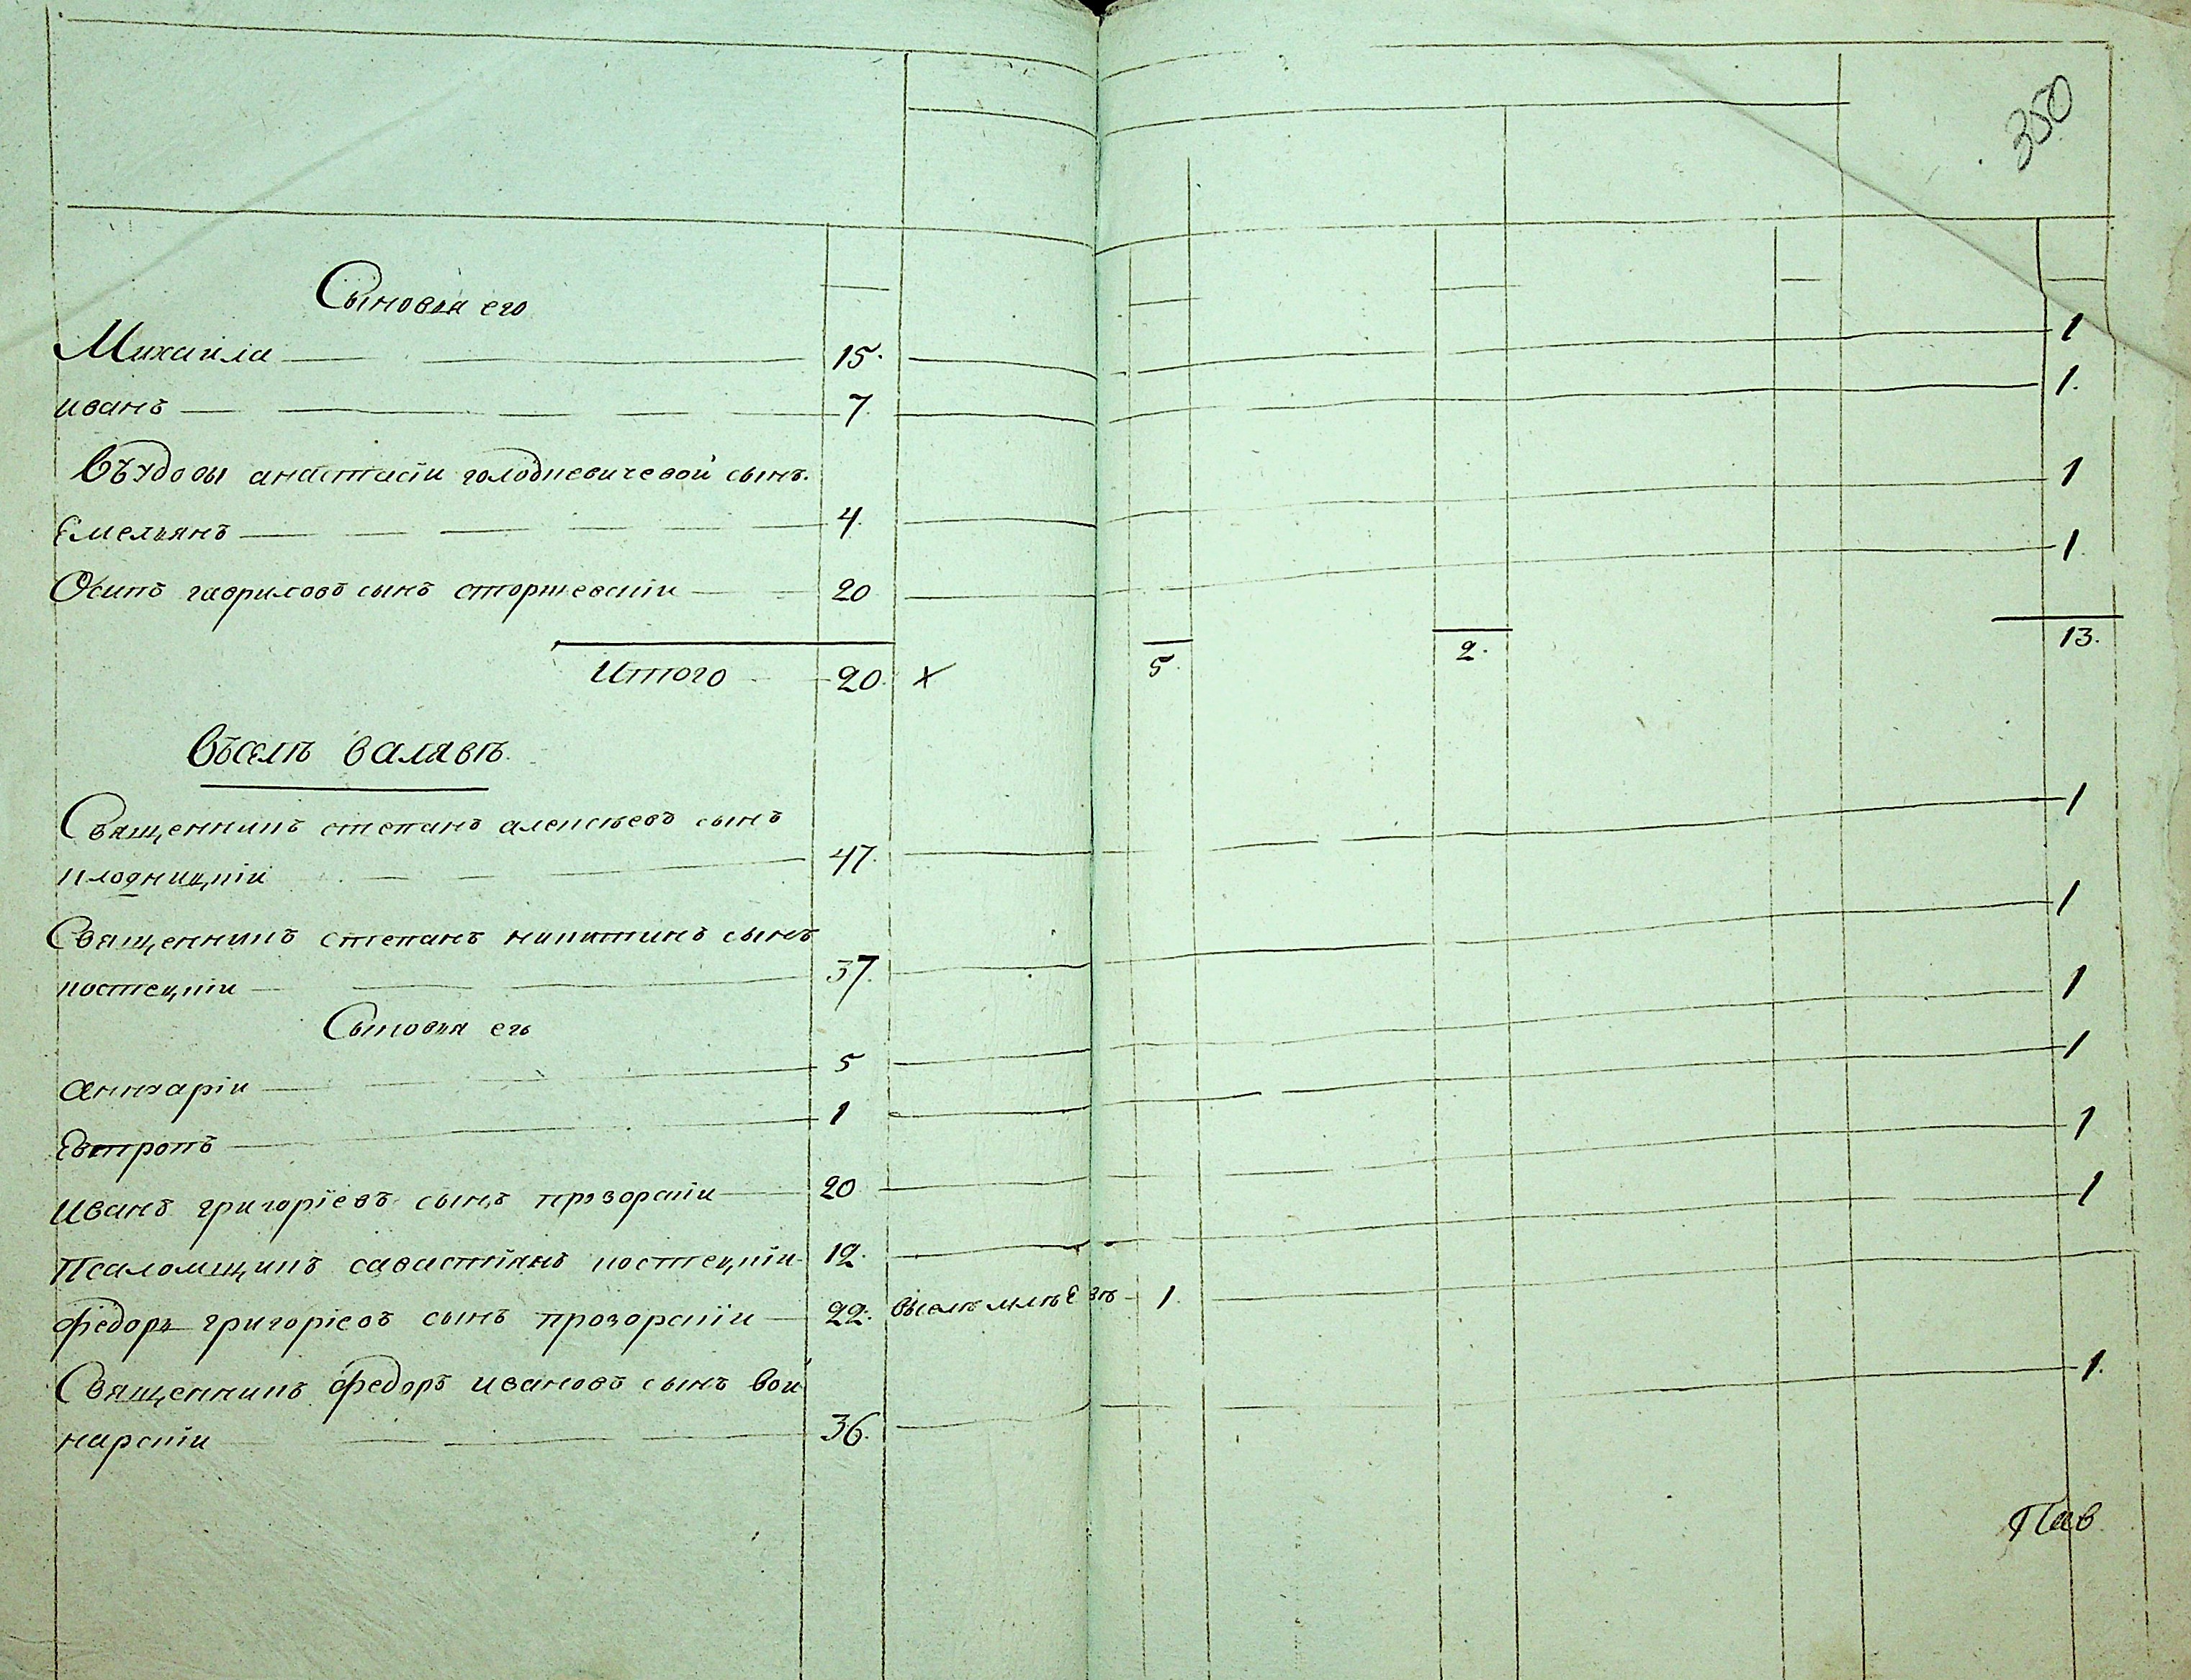 350
Сыновья его
Михайла 15. 1
иванъ 7. 1.
Въдовы анастасіи голодкевичевой сынъ.
Емельянъ 4. 1
Осипъ гавриловъ сынъ сторжевскіи 20 1.
Итого 20. х 5. 2. 13.
Въселѣ валявѣ.
Священникъ степанъ алексѣевъ сынъ
плодницкіи 47. 1
Священникъ степанъ никитинъ сынъ
костецкіи 37. 1
Сыновья его
аннваріи 5 1
Евтропъ 1 1
Иванъ григоріевъ сынъ прозорскіи 20 1
Псаломщикъ савастіянъ костецкіи 12. 1
федоръ григоріевъ сынъ прозорскіи 22. Въселѣ млѣевѣ 1.
Священникъ федоръ ивановъ сынъ вой
нарскіи 36. 1.
Пав